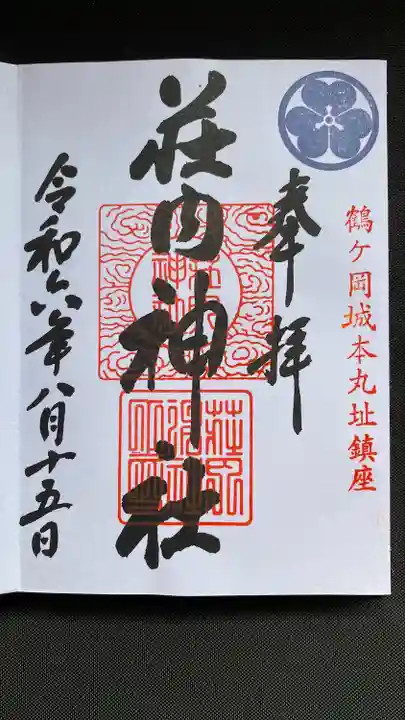 鶴ケ岡城本丸址鎮座
奉拝
荘内神社
令和六年八月十五日